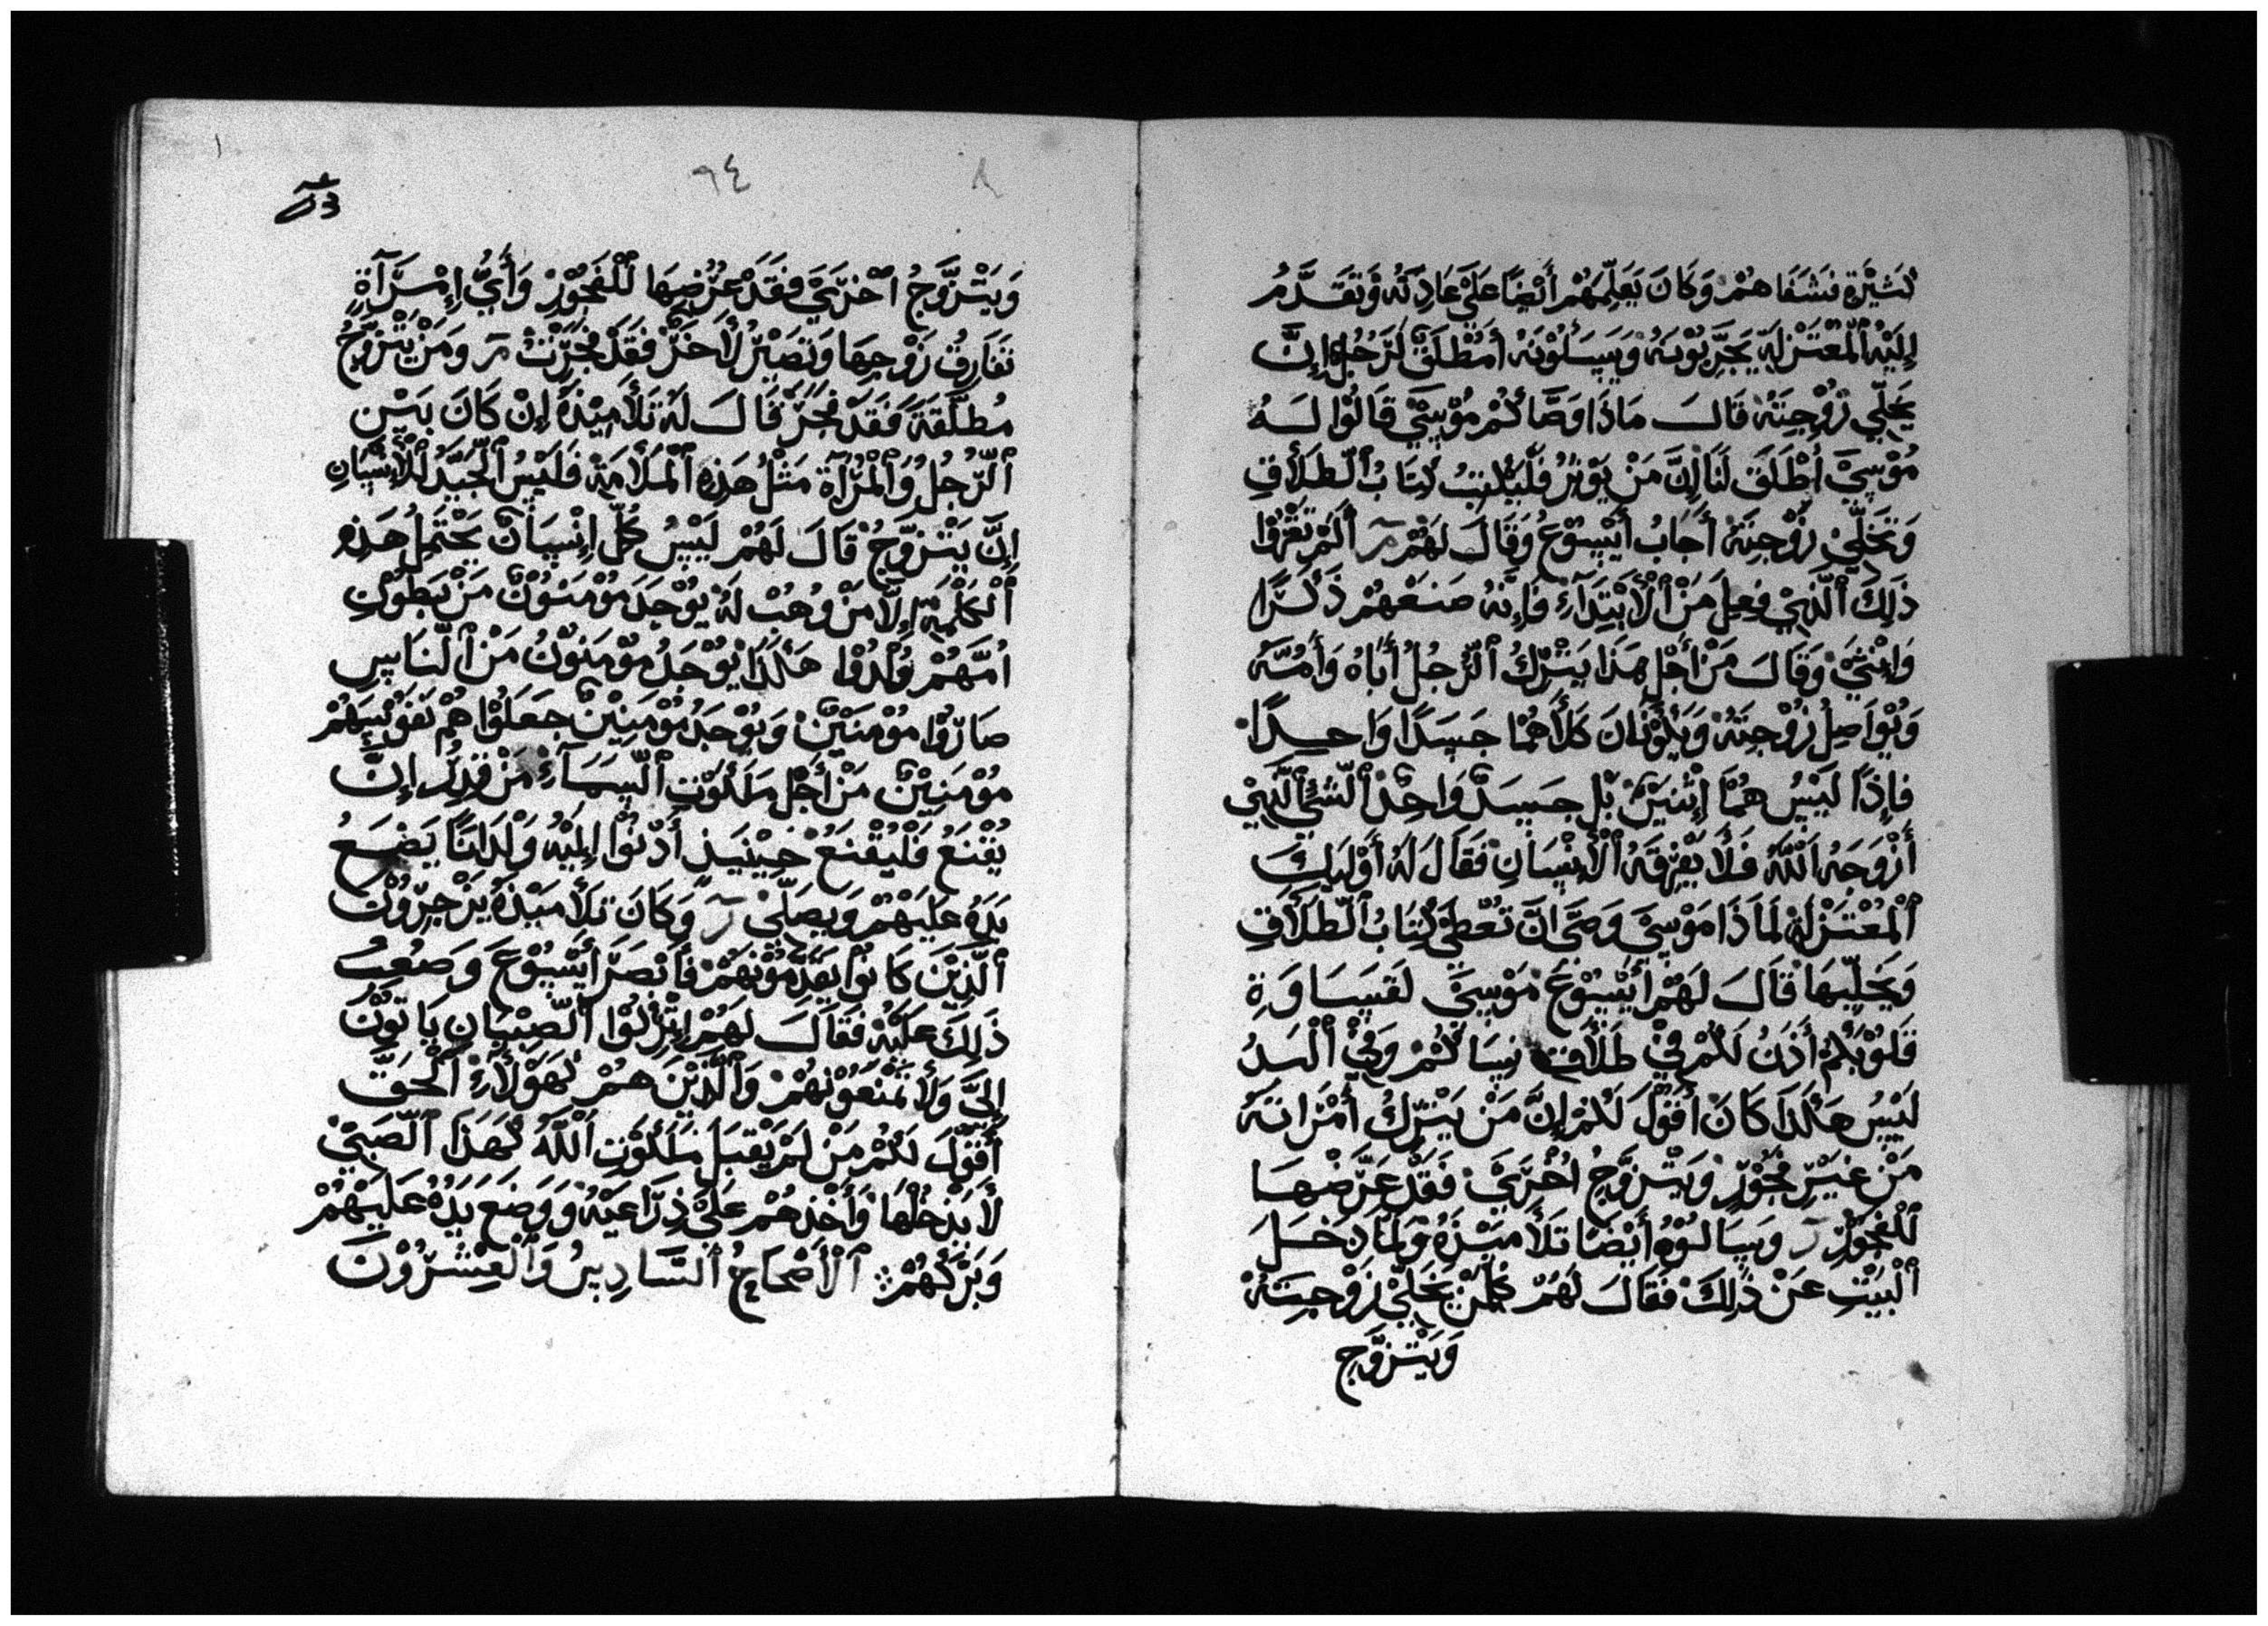 كَثِيْرَةٍ فَشَفَاهُمْ وَكَانَ يَعَلِّمَهُمْ أَيْضًا عَلَىْ عَادِتَهُ وَتَقَدَّمُ
إِلَيْهُ اَلْمُعْتَزْلَةِ يَجَرِّبُوْنَهُ وَيَسَلُوْنَهُ أَمُطْلَقْ لَرَّجُلِ إِنَّ
يَخَلِّي زَوْجِتَهْ قَالَ مَاذَا وَصَّاكُمْ مُوْسَيْ قَالُوْا لَهُ
مُوْسَيْ أَطْلَقَ لَنَا إِنَّ مَنْ يَوْثِرُ فَلْيَكْتِبُ كِتَابُ اَلْطَلَاقِ
وَتَخَلِّيْ زَوْجِتَهْ أَجَابُ أَيْسُوْعُ وَقَالَ لَهْمْ أَلَمْ تَقْرَوْا
ذَلِكَ اَلَّذِيْ فِعِلَ مَنْ اَلْأَبْتِدَآءِ فَإِنَّهُ صَنَعْهُمْ ذَكَرًا
وَإِنْثَيْ وَقَالَ مَنْ أَجْلِ هَذَا يَتْرُكُ اَلْرَّجُلُ أَبَاهُ وَأُمُّهُ
وَيُوَاصِلُ زَوْجِتَهْ وَيَكُوْنَانَ كَلَاهُمَا جَسَدًا وَاحِدًا
فَإِذًا لَيْسُ هُمَا إِثْنَيْنْ بَلْ جَسَدْ وَاحِدْ اَلْشَئْ اَلَّذِيْ
أَزْوَجَهُ اَللّٰهُ فَلَا يَفْرِقَهُ اَلْأَنْسَانِ فَقَالَ لَهُ أَوْلَيِكَ
اَلْمُعْتَزْلَهْ لَمَاذَا مُوْسَيْ وَصَّى انَّ تُعْطَى كِتَابُ اَلْطَلَاقِ
وَيَخَلِّيْهَا قَالَ لَهُمْ أَيْسُوْعَ مَوْسَيْ لَقَسَاوَةِ
قَلُوْبُكُمْ أَذَنُ لَكُمْ فِيْ طَلَاقِ نِسَاكُمْ وَفِيْ اَلْبَدُ
لَيْسُ هَكَذَا كَانْ أَقُوْلَ لَكُمْ إِنَّ مَنْ يَتْرَكُ أَمْرَاتَهُ
مَنْ غَيْرِ فُجُوْرٍ وَيَتْزَوَّجُ اُخْرَيْ فَقَدْ عَرَّضْهَا
لَلْفُجُوْرُ وَسَالُوْهُ أَيْضًا تَلَامِيْذَهُ وَلَمَّا دَخَلَ
اَلْبَيْتِ عَنْ ذَلِكَ فَقَالَ لَهُمْ كُلْمَنْ يَخَلِّيْ زَوْجِتَهْ
وَيَتْزَوَّجِ
٩٤
وَيَتْزَوَّجُ اُخْرَيْ فَقَدْ عَرَّضِهَا لَلْفُجُوْرْ وَأَيُّ إِمْرَآةٍ
تَفَارِقُ زَوْجِهَا وَتَصَيْرْ لْأَخَرْ فَقَدْ فُجِرَتْ وَمَنْ يَتْزَوَّجُ
مُطَلَّقَةً فَقَدْ فُجَرَ قَالَ لَهُ تَلَامِيْذَهُ إِنْ كَانَ بَيْنِ
اَلْرَّجُلُ وَاَلْمَرْآةْ مَثْلُ هَذِهِ اَلْمَلَامَةْ فَلَيْسُ اَلْجَيِّدُ اَلْأَنْسَانِ
إِنَّ يَتْزَوَّجْ قَالَ لَهُمْ لَيْسُ كُلِّ إِنْسَانْ يَحْتَمِلُ هَذِهِ
اَلْكَلْمِةْ إِلَّا مَنْ وُهُبْ لَهُ يُوْجَدُ مُؤْمَنُوْنْ مَنْ بَطُوْنِ
اُمَّهُمْ وُلِدُوْا هَكَذَا يُوْجَدُ مُوْمَنُوْنُ مَنْ اَلْنَاسِ
صَارُوْا مُوْمَنَيْنْ وَيُوْجَدُ مُؤْمِنِيْنْ جَعَلُوْا هُمْ نَفُوْسِهُمْ
مُوْمَنِيْنْ مَنْ أَجْلِ مَلَكُوْتِ اَلْسَمَآءِ مَنْ قَدِرُ إِنَّ
يُقْنَعُ فَلْيُقْنَعُ حِيْنَيَذِ أَدْنُوْا إِلَيْهُ وَلْدَانًا يَضَعُ
يَدَهُ عَلَيْهُمْ وَيَصَلِّيْ وَكَانَ تَلَامَيْذَهُ يَزْجِرُوْنَ
اَلَّذِيْنَ كَانُوْا يَقَدِّمُوْنَهُمْ فَأَنْصَرَ أَيْسُوْعَ وَصَعُبُ
ذَلِكَ عَلَيْهْ فَقَالَ لَهُمْ إِتْرُكُوْا اَلْصِبْيَانِ يَاتُوْنَ
إِلَيَّ وَلَا تَمْنَعُوْنَهُمْ وَاَلَّذِيْنَ هُمْ كَهَوْلَآءِ اَلْحَقَّ
أَقُوْلَ لَكُمْ مَنْ لَمْ يَقْبَلَ مَلَكُوْتِ اَللّٰهُ كَهَذَا اَلْصَبِيْ
لَا يَدْخُلْهَا وَأَخْذِهُمْ عَلَىْ ذِرَاعَيْهُ وَوَضَعَ يَدَهُ عَلَيْهُمْ
وَبَرَكَهُمْ اَلْأَصْحَاحُ اَلْسَادِسُ وَاَلْعِشْرُوْنَ